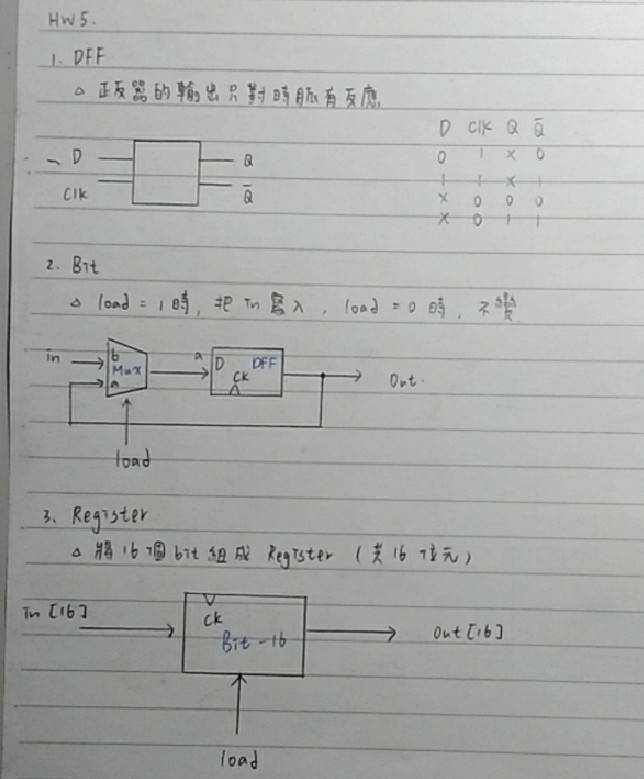 HW5.
1. DFF
△ 正反器的輸出只對時脈有反應
D Clk Q Q̅
0 1 x 0
1 1 x 1
x 0 0 0
x 0 1 1
D Q
Clk Q̅
2. Bit
△ load = 1 時, 把 in 寫入, load = 0 時, 不變
in b Mux a a D DFF CK Out.
load
3. Register
△ 將16個bit組成 Register (共16位元)
in [16] CK Bit-16 Out [16]
load